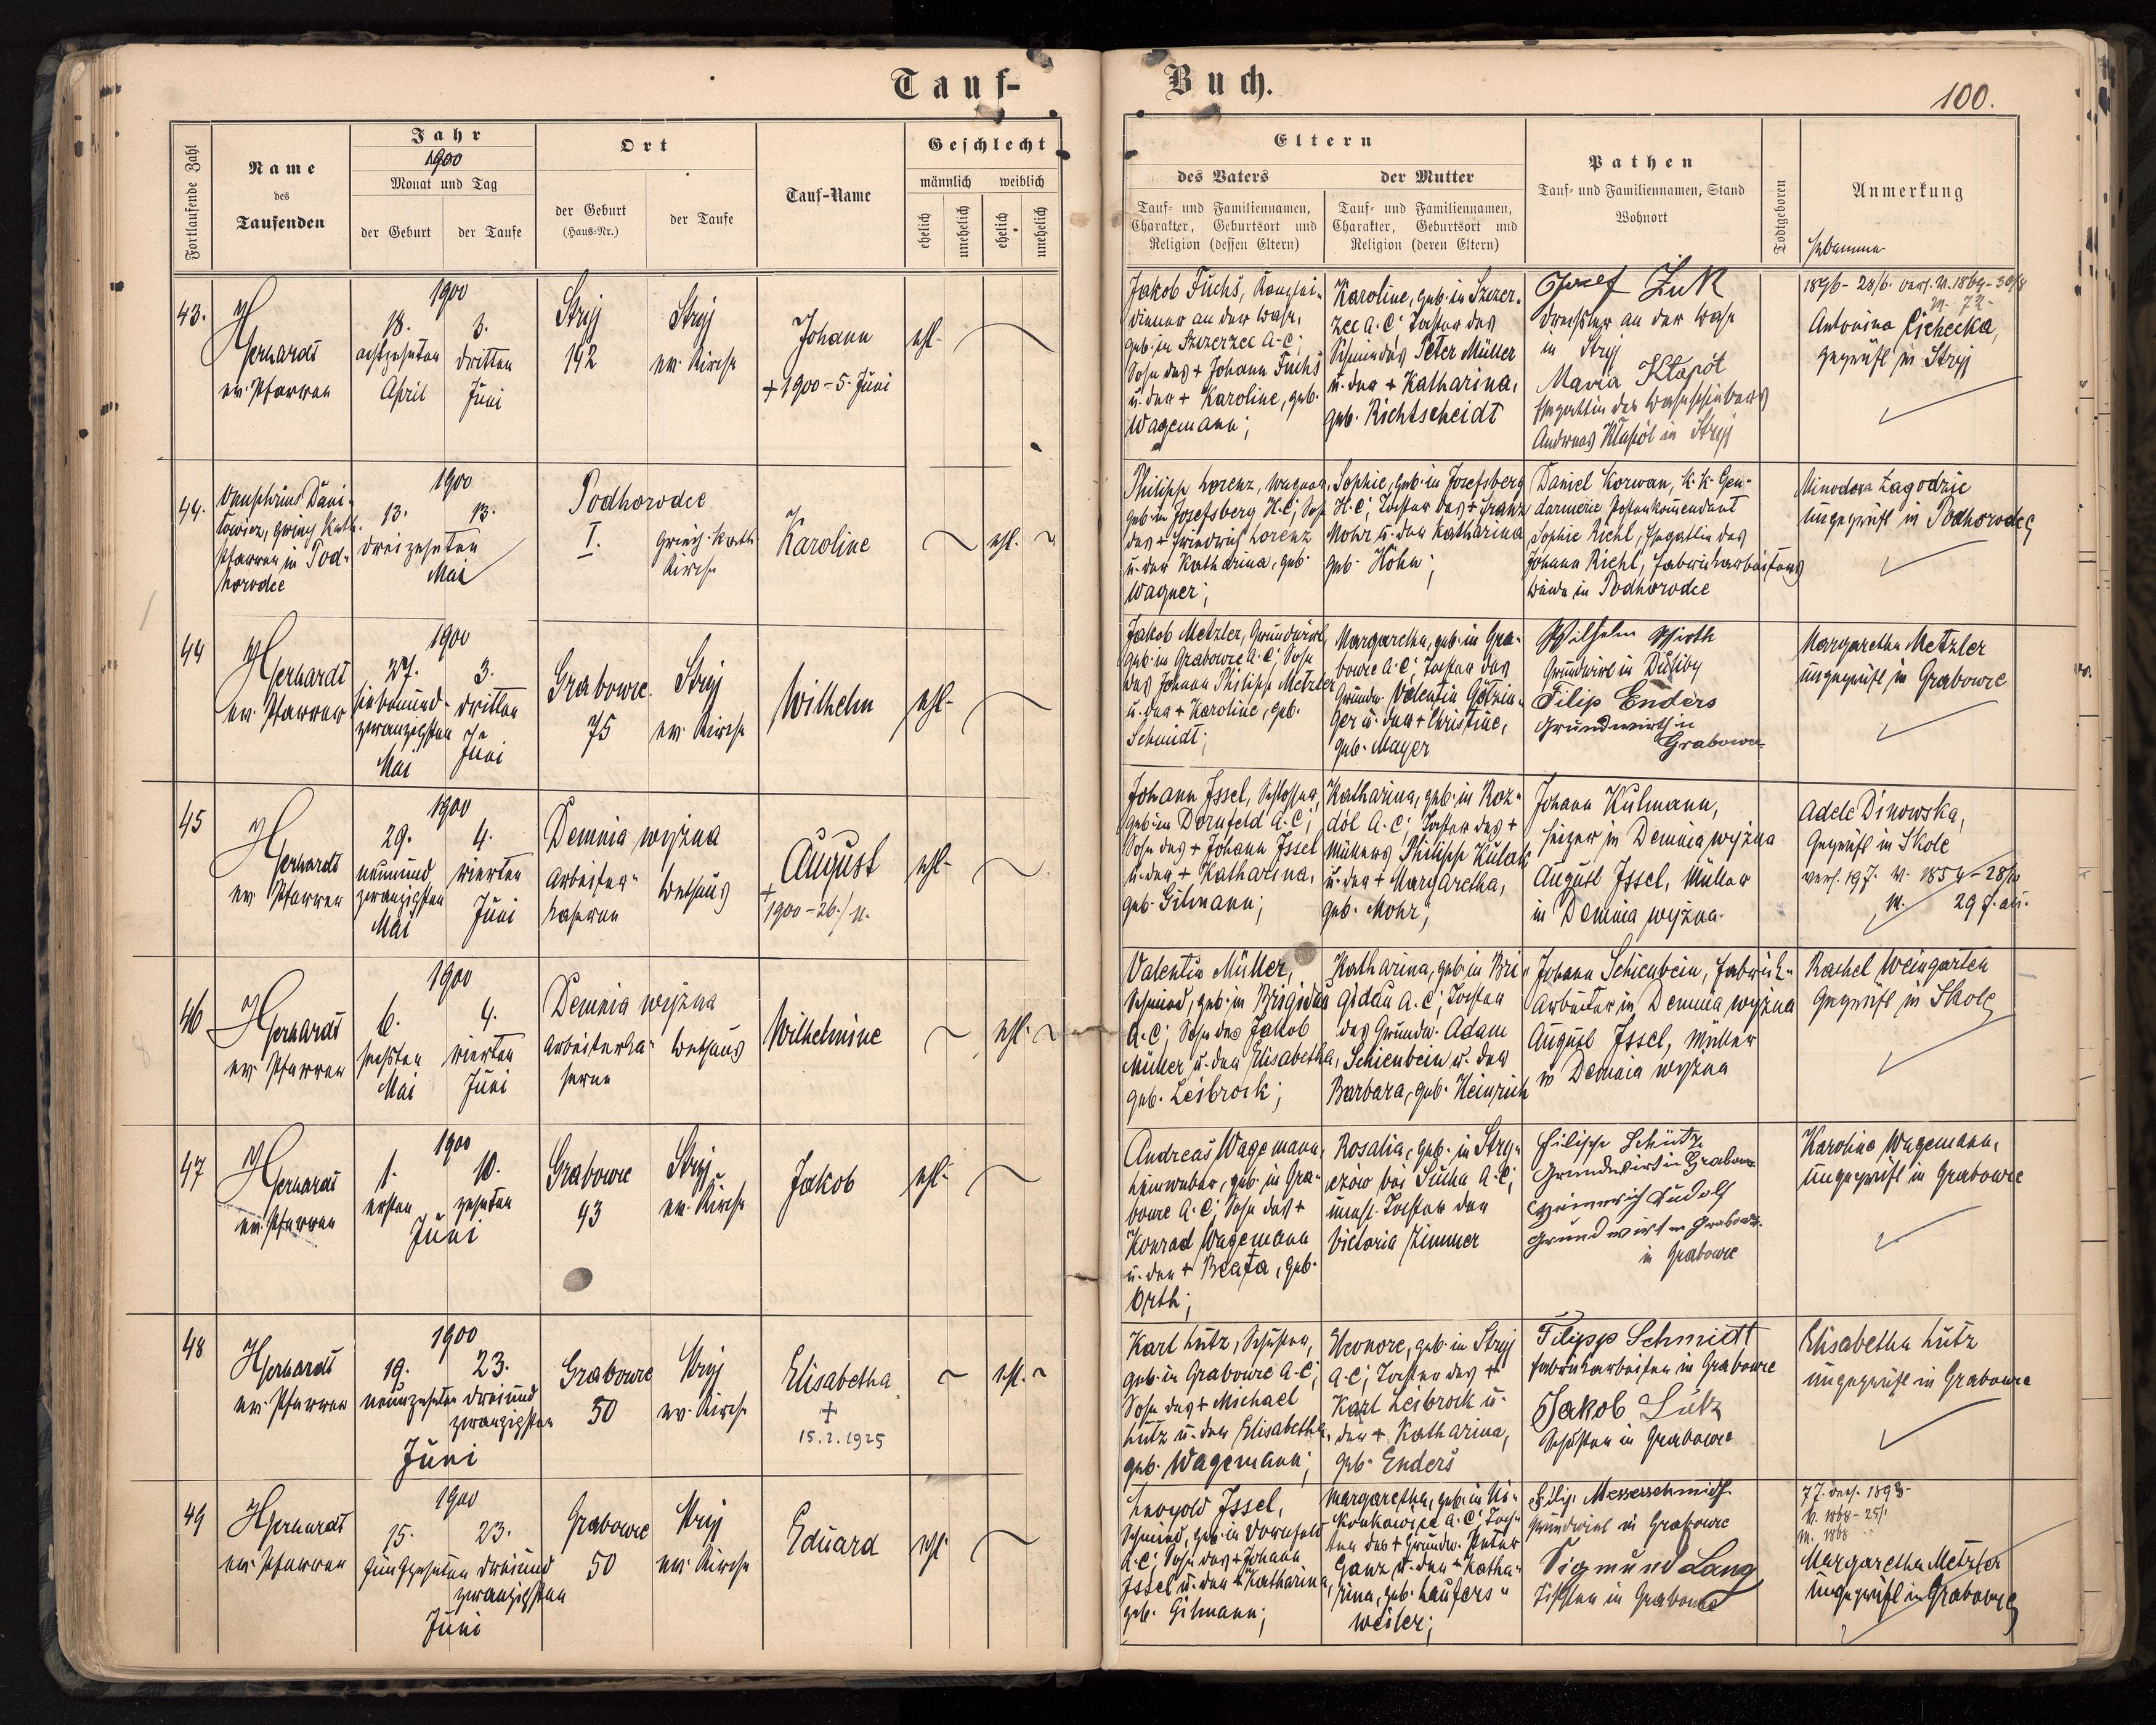 Tauf-
Buch.
100.
Fortlaufende Zahl
Name
des
Taufenden
Jahr
1900
Monat und Tag
der Geburt
der Taufe
Ort
der Geburt
(Haus-Nr.)
der Taufe
Tauf-Name
Geschlecht
männlich
weiblich
ehelich
unehelich
ehelich
unehelich
Eltern
des Vaters
der Mutter
Tauf- und Familiennamen,
Charakter, Geburtsort und
Religion (dessen Eltern)
Tauf- und Familiennamen,
Charakter, Geburtsort und
Religion (deren Eltern)
Pathen
Tauf- und Familiennamen, Stand
Wohnort
Todtgeboren
Anmerkung
Hebamme
43.
Gerhardt
ev. Pfarrer
1900
18.
achtzehnten
April
3.
dritten
Juni
Stryj
192
Stryj
ev. Kirche
Johann
+ 1900 - 5. Juni
ehl.
Jakob Fuchs, Kanzlei-
diener an der Bahn,
geb. in Szczerzec A.C;
Sohn des + Johann Fuchs
u. der + Karoline, geb.
Wagemann;
Karoline, geb. in Szczer-
zec A.C; Tochter des
Schmiedes Peter Müller
u. der + Katharina,
geb. Richtscheidt
Josef Żuk
Drechsler an der Bahn
in Stryj
Maria Kłapót
Ehegattin des
Andreas Kłapót in Stryj
1896 - 28/6. verh. V. 1869 - 30/8
M. 72
Antonina Cichecka,
geprüft in Stryj
44.
Onuphrius Dani-
łowicz, griech. kath.
Pfarrer in Pod-
horodce
1900
13.
13.
dreizehnten
Mai
Podhorodce
I.
griech. kath.
Kirche
Karoline
ehl.
Philipp Lorenz, Wagner,
geb. in Josefsberg H.C; Sohn
des + Friedrich Lorenz
u. der Katharina, geb.
Wagner;
Sophie, geb. in Josefsberg
H.C; Tochter des + Franz
Mohr u. der Katharina
geb. Höhn;
Daniel Korwan, k. k. Gen-
darmerie Postenkomendant
Sophie Richl, Ehegattin des
Johann Richl, Fabriksarbeiters
beide in Podhorodce
Minodora Łagodzic
ungeprüft in Podhorodce
44
Gerhardt
ev. Pfarrer
1900
27.
siebenund-
zwanzigsten
Mai
3.
dritten
Juni
Grabowce
75
Stryj
ev. Kirche
Wilhelm
ehl.
Jakob Metzler, Grundwirt,
geb. in Grabowce A.C; Sohn
des Johann Philipp Metzler
u. der + Karoline, geb.
Schmidt;
Margaretha, geb. in Gra-
bowce A.C; Tochter des
Grundw. Valentin Götzin-
ger u. der + Christine,
geb. Mayer
Wilhelm Wirth
Grundwirt in Duliby
Filip Enders
Grundwirth in
Grabowce
Margaretha Metzler
ungeprüft in Grabowce
45
Gerhardt
ev. Pfarrer
1900
29.
neunund
zwanzigsten
Mai
4.
vierten
Juni
Demnia wyżna
Arbeiter-
kaserne
Bethaus
August
+
1900 - 26./11.
ehl.
Johann Issel, Schlosser,
geb. in Dornfeld A.C;
Sohn des + Johann Issel
u. der + Katharina,
geb. Gilmann;
Katharina, geb. in Roz-
dól A.C; Tochter des +
Müllers Philipp Kulak
u. der + Margaretha,
geb. Mohr;
Johann Kulmann,
Heizer in Demnia wyżna
August Issel, Müller
in Demnia wyżna.
Adele Dinowska,
geprüft in Skole
46
Gerhardt
ev. Pfarrer
1900
6.
sechsten
Mai
4.
vierten
Juni
Demnia wyżna
Arbeiterka-
serne
Bethaus
Wilhelmine
ehl.
Valentin Müller,
Schmied, geb. in Brigidau
A.C; Sohn des Jakob
Müller u. der Elisabetha,
geb. Leibrock;
Katharina, geb. in Bri-
gidau A.C; Tochter
des Grundw. Adam
Schienbein u. der
Barbara, geb. Heinrich
Johann Schienbein, Fabriks-
arbeiter in Demnia wyżna
August Issel, Müller
in Demnia wyżna
Rachel Weingarten
geprüft in Skole
47
Gerhardt
ev. Pfarrer
1900
1.
ersten
10.
zehnten
Juni
Grabowce
93
Stryj
ev. Kirche
Jakob
ehl.
Andreas Wagemann,
Leinweber, geb. in Gra-
bowce A.C; Sohn des +
Konrad Wagemann
u. der + Beata, geb.
Orth;
Rosalia, geb. in
bei Sucha A.C;
unehl. Tochter der
Victoria Zimmer
Filipp Schütz
Grundwirt in Grabowce
Heinrich Rudolf
Grundwirt in Grabowce
in Grabowce
Karoline Wagemann,
ungeprüft in Grabowce
48
Gerhardt
ev. Pfarrer
1900
19.
neunzehnten
23.
dreiund
zwanzigsten
Juni
Grabowce
50
Stryj
ev. Kirche
Elisabetha
+
15.2.1925
ehl.
Karl Lutz, Schuster,
geb. in Grabowce A.C;
Sohn des + Michael
Lutz u. der Elisabetha,
geb. Wagemann;
Eleonore, geb. in Stryj
A.C; Tochter des +
Karl Leibrock u.
der + Katharina,
geb. Enders
Filipp Schmidt
Fabriksarbeiter in Grabowce
Jakob Lutz
Schuster in Grabowce
Elisabetha Lutz
ungeprüft in Grabowce
49
Gerhardt
ev. Pfarrer
1900
15.
fünfzehnten
23.
dreiund
zwanzigsten
Juni
Grabowce
50
Stryj
ev. Kirche
Eduard
ehl.
Leopold Issel,
Schmied, geb. in Dornfeld
A.C; Sohn des + Johann
Issel u. der + Katharina,
geb. Gilmann;
Margaretha, geb. in
A.C; Toch-
ter des + Grundw. Peter
Ganz u. der + Katha-
rina, geb. Laufers-
weiler;
Filip Messerschmidt
Grundwirt in Grabowce
Sigmund Lang
Tischler in Grabowce
Margaretha Metzler
ungeprüft in Grabowce